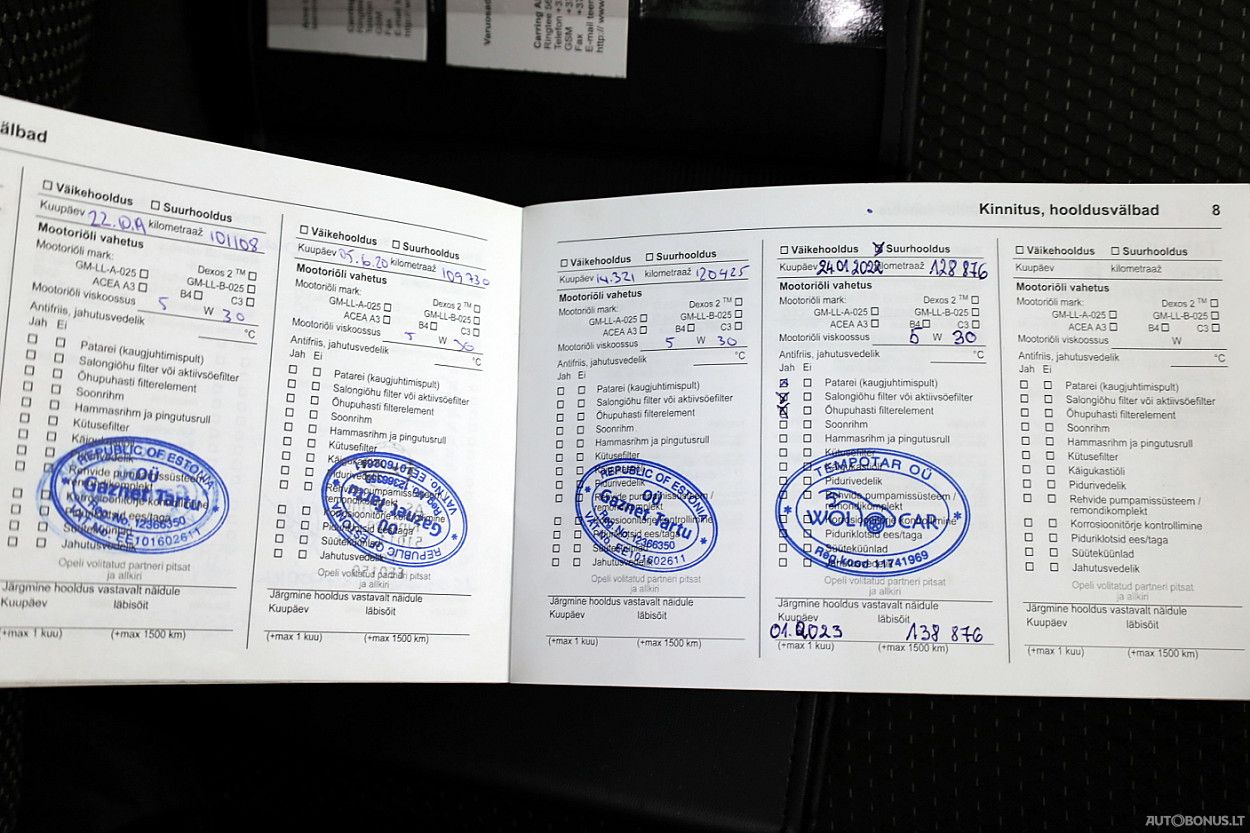 Carring A
Ringtee 56
Telefon +3
GSM +3
Fax +37
E-mail teen
http:// www
Varuosad
älbad
☐ Väikehooldus ☐ Suurhooldus
Kuupäev 22. kilometraaž 101108
Mootoriõli vahetus
Mootoriõli mark:
Dexos 2 ™ ☐
GM-LL-A-025 ☐ GM-LL-B-025 ☐
ACEA A3 ☐ B4 ☐ C3 ☐
Mootoriõli viskoossus 5 W 30
Antifriis, jahutusvedelik °C
Jah Ei
☐ ☐ Patarei (kaugjuhtimispult)
☐ ☐ Salongiõhu filter või aktiivsöefilter
☐ ☐ Õhupuhasti filterelement
☐ ☐ Soonrihm
☐ ☐ Hammasrihm ja pingutusrull
☐ ☐ Kütusefilter
REPUBLIC OF ESTONIA
OÜ
Gaznet Tartu
Reg. No. 12366350
EE101602611
☐ ☐ Jahutusvedelik
Opeli volitatud partneri pitsat
ja allkiri
Järgmine hooldus vastavalt näidule
Kuupäev läbisõit
(+max 1 kuu) (+max 1500 km)
☐ Väikehooldus ☐ Suurhooldus
Kuupäev 05.6.20 kilometraaž 109730
Mootoriõli vahetus
Mootoriõli mark:
Dexos 2 ™ ☐
GM-LL-A-025 ☐ GM-LL-B-025 ☐
ACEA A3 ☐ B4 ☐ C3 ☐
Mootoriõli viskoossus 5 W 30
Antifriis, jahutusvedelik °C
Jah Ei
☐ ☐ Patarei (kaugjuhtimispult)
☐ ☐ Salongiõhu filter või aktiivsöefilter
☐ ☐ Õhupuhasti filterelement
☐ ☐ Soonrihm
☐ ☐ Hammasrihm ja pingutusrull
☐ ☐ Kütusefilter
REPUBLIC OF ESTONIA
OÜ
Gaznet Tartu
Reg. No. 12366350
VAT No. EE101602611
☐ ☐ Piduriklotsid ees/taga
☐ ☐ Süüteküünlad
☐ ☐ Jahutusvedelik
Opeli volitatud partneri pitsat
ja allkiri
Järgmine hooldus vastavalt näidule
Kuupäev läbisõit
(+max 1 kuu) (+max 1500 km)
Kinnitus, hooldusvälbad 8
☐ Väikehooldus ☐ Suurhooldus
Kuupäev 14.321 kilometraaž 120425
Mootoriõli vahetus
Mootoriõli mark:
Dexos 2 ™ ☐
GM-LL-A-025 ☐ GM-LL-B-025 ☐
ACEA A3 ☐ B4 ☐ C3 ☐
Mootoriõli viskoossus 5 W 30
Antifriis, jahutusvedelik °C
Jah Ei
☐ ☐ Patarei (kaugjuhtimispult)
☐ ☐ Salongiõhu filter või aktiivsöefilter
☐ ☐ Õhupuhasti filterelement
☐ ☐ Soonrihm
☐ ☐ Hammasrihm ja pingutusrull
☐ ☐ Kütusefilter
REPUBLIC OF ESTONIA
OÜ
Gaznet Tartu
Reg. No. 12366350
VAT No. EE101602611
☐ ☐ Jahutusvedelik
Opeli volitatud partneri pitsat
ja allkiri
Järgmine hooldus vastavalt näidule
Kuupäev läbisõit
(+max 1 kuu) (+max 1500 km)
☐ Väikehooldus ☒ Suurhooldus
Kuupäev 24.01.2022 kilometraaž 128 876
Mootoriõli vahetus
Mootoriõli mark:
Dexos 2 ™ ☐
GM-LL-A-025 ☐ GM-LL-B-025 ☐
ACEA A3 ☐ B4 ☐ C3 ☐
Mootoriõli viskoossus 5 W 30
Antifriis, jahutusvedelik °C
Jah Ei
☒ ☐ Patarei (kaugjuhtimispult)
☒ ☐ Salongiõhu filter või aktiivsöefilter
☒ ☐ Õhupuhasti filterelement
☐ ☐ Soonrihm
☐ ☐ Hammasrihm ja pingutusrull
☐ ☐ Kütusefilter
TEMPOTAR OÜ
CAR
Reg.kood 11741969
☐ ☐ Piduriklotsid ees/taga
☐ ☐ Süüteküünlad
Opeli volitatud partneri pitsat
ja allkiri
Järgmine hooldus vastavalt näidule
Kuupäev läbisõit
01.2023 138 876
(+max 1 kuu) (+max 1500 km)
☐ Väikehooldus ☐ Suurhooldus
Kuupäev kilometraaž
Mootoriõli vahetus
Mootoriõli mark:
Dexos 2 ™ ☐
GM-LL-A-025 ☐ GM-LL-B-025 ☐
ACEA A3 ☐ B4 ☐ C3 ☐
Mootoriõli viskoossus W
Antifriis, jahutusvedelik °C
Jah Ei
☐ ☐ Patarei (kaugjuhtimispult)
☐ ☐ Salongiõhu filter või aktiivsöefilter
☐ ☐ Õhupuhasti filterelement
☐ ☐ Soonrihm
☐ ☐ Hammasrihm ja pingutusrull
☐ ☐ Kütusefilter
☐ ☐ Käigukastiõli
☐ ☐ Pidurivedelik
☐ ☐ Rehvide pumpamissüsteem /
remondikomplekt
☐ ☐ Korrosioonitõrje kontrollimine
☐ ☐ Piduriklotsid ees/taga
☐ ☐ Süüteküünlad
☐ ☐ Jahutusvedelik
Opeli volitatud partneri pitsat
ja allkiri
Järgmine hooldus vastavalt näidule
Kuupäev läbisõit
(+max 1 kuu) (+max 1500 km)
AUTOBONUS.LT